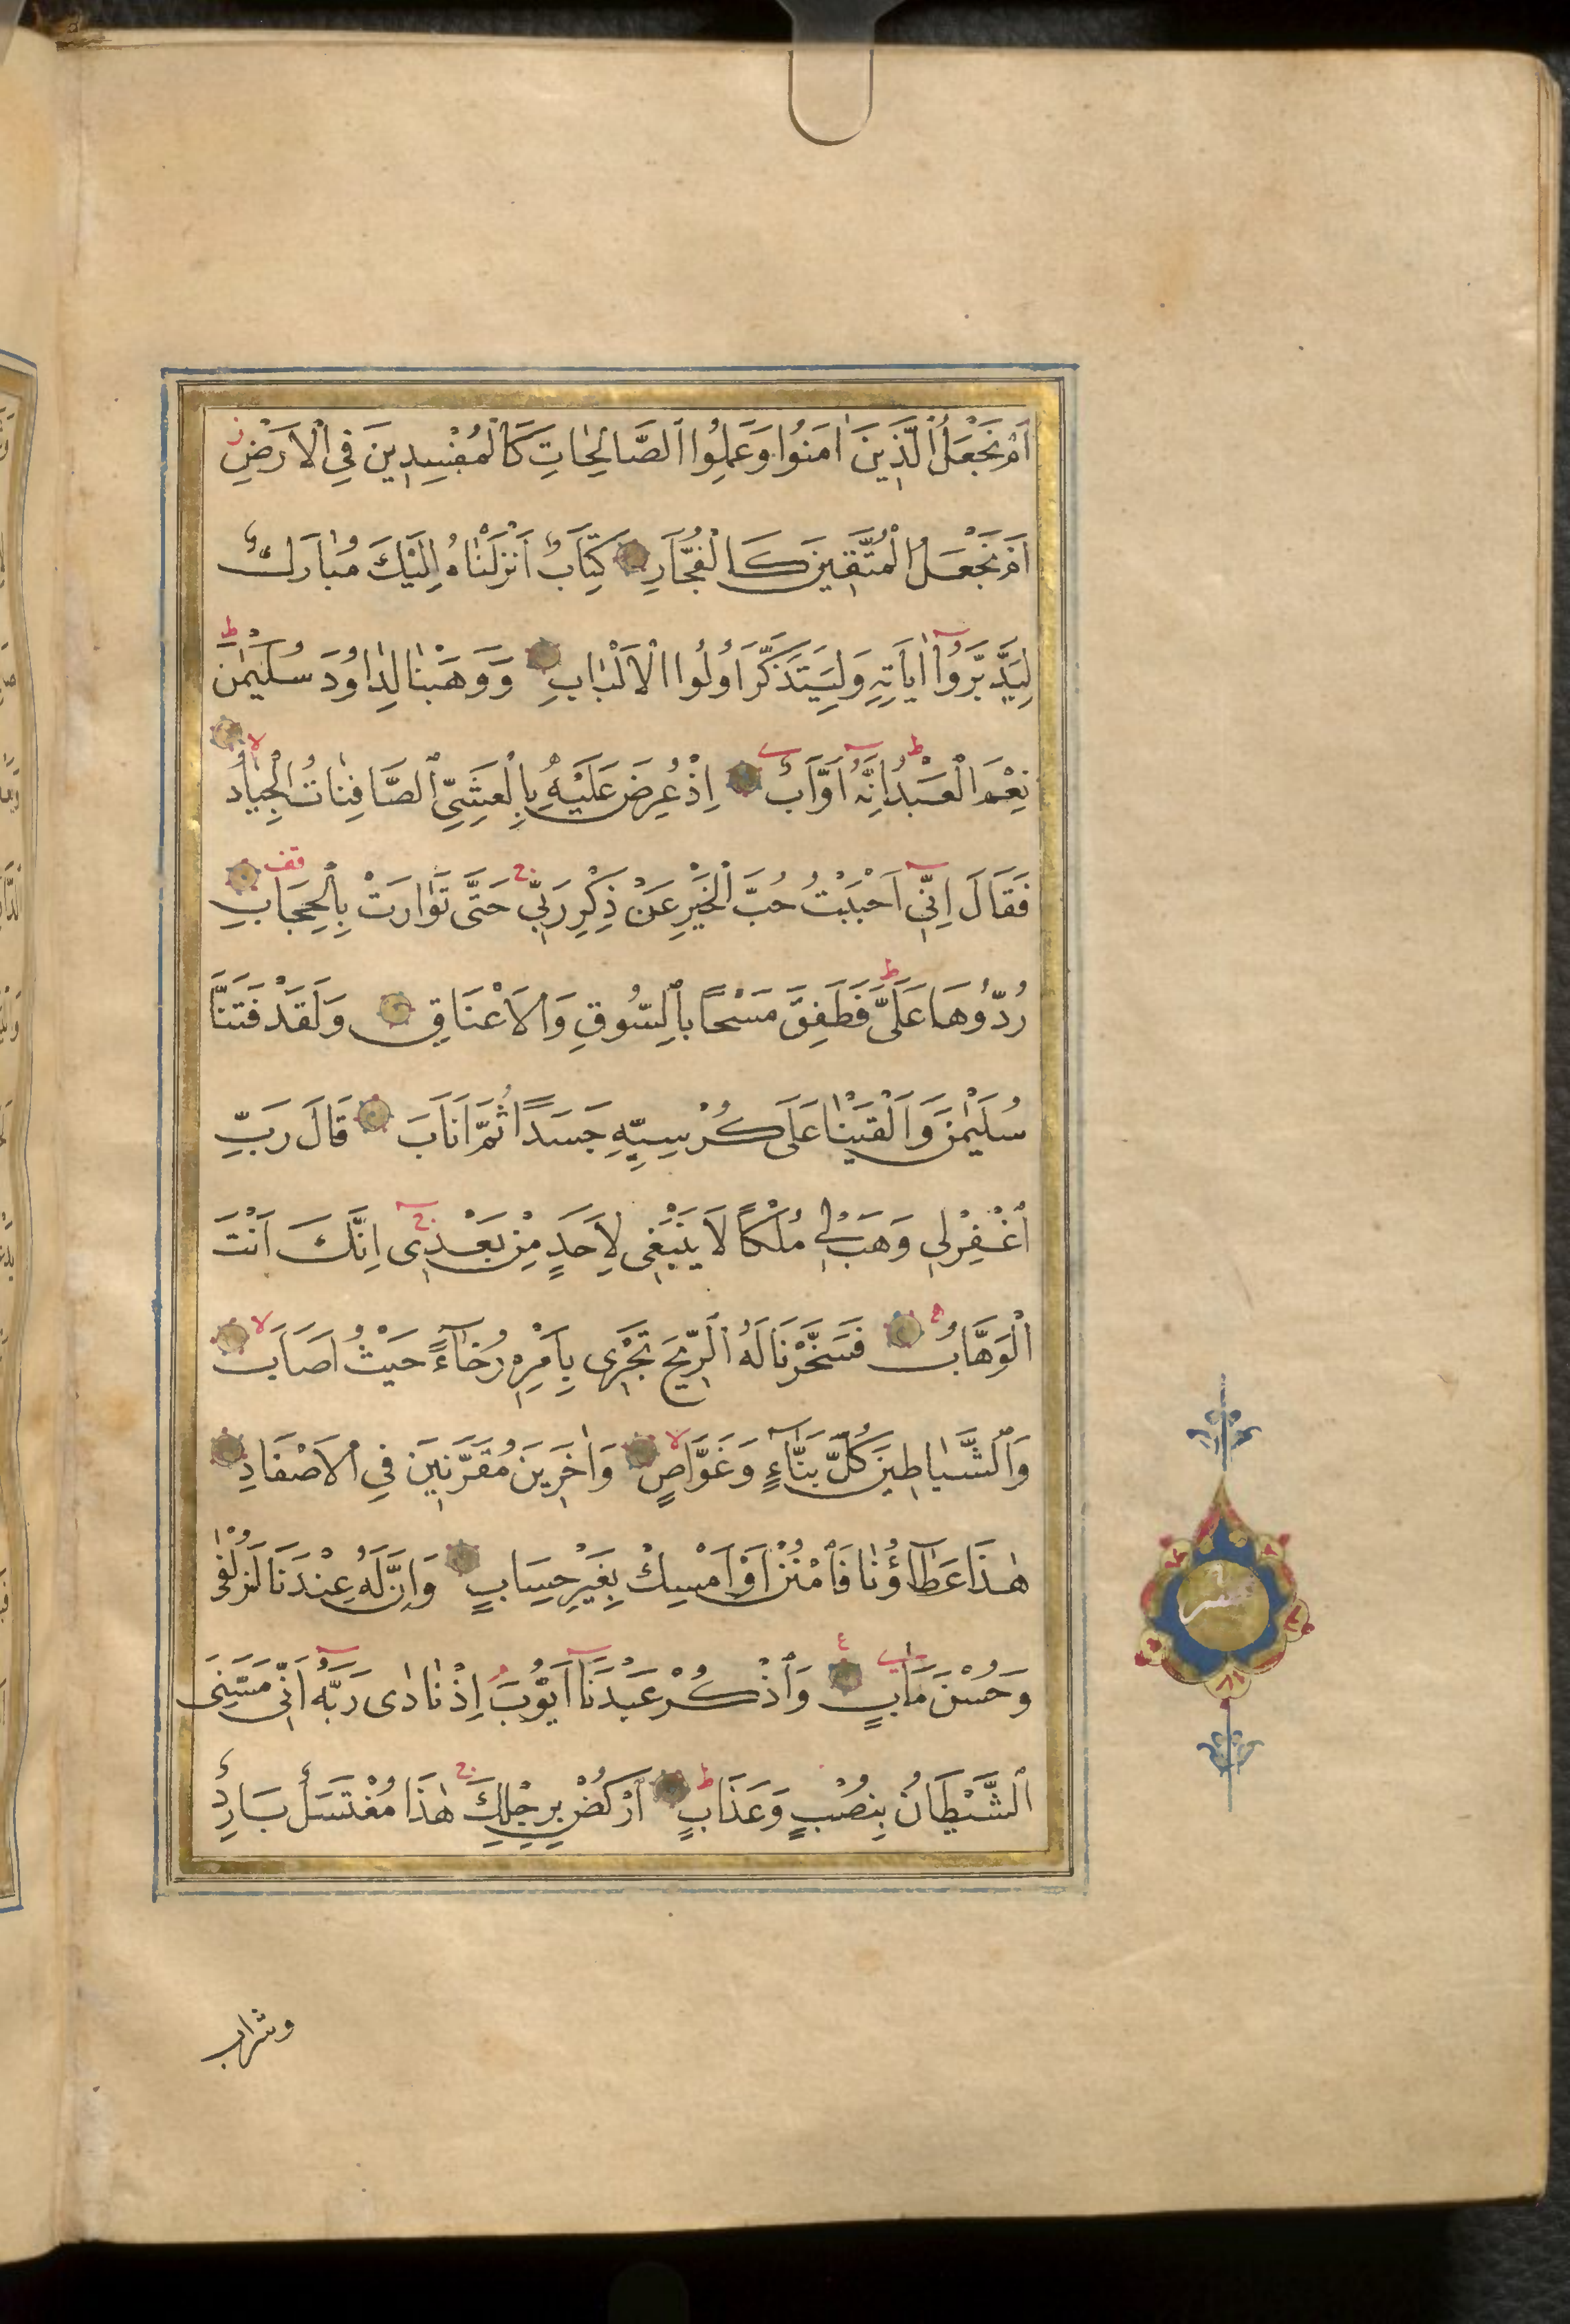 اَمْ نَجْعَلُ الَّذِينَ اٰمَنُوا وَعَمِلُوا الصَّالِحَاتِ كَالْمُفْسِدِينَ فِي الْاَرْضِ ز
اَمْ نَجْعَلُ الْمُتَّقِينَ كَالْفُجَّارِ كِتَابٌ اَنْزَلْنَاهُ اِلَيْكَ مُبَارَكٌ
لِيَدَّبَّرُوٓا اٰيَاتِهِ وَلِيَتَذَكَّرَ اُولُوا الْاَلْبَابِ وَوَهَبْنَا لِدَاوُدَ سُلَيْمٰنَ ط
نِعْمَ الْعَبْدُ ط اِنَّهُٓ اَوَّابٌ اِذْ عُرِضَ عَلَيْهِ بِالْعَشِيِّ الصَّافِنَاتُ الْجِيَادُ لا
فَقَالَ اِنِّٓي اَحْبَبْتُ حُبَّ الْخَيْرِ عَنْ ذِكْرِ رَبِّي ج حَتّٰى تَوَارَتْ بِالْحِجَابِ قف
رُدُّوهَا عَلَيَّ ط فَطَفِقَ مَسْحًا بِالسُّوقِ وَالْاَعْنَاقِ وَلَقَدْ فَتَنَّا
سُلَيْمٰنَ وَاَلْقَيْنَا عَلٰى كُرْسِيِّهِ جَسَدًا ثُمَّ اَنَابَ قَالَ رَبِّ
اغْفِرْ لِي وَهَبْ لِي مُلْكًا لَا يَنْبَغِي لِاَحَدٍ مِنْ بَعْدِي ج اِنَّكَ اَنْتَ
الْوَهَّابُ فَسَخَّرْنَا لَهُ الرِّيحَ تَجْرِي بِاَمْرِهِ رُخَآءً حَيْثُ اَصَابَ لا
وَالشَّيَاطِينَ كُلَّ بَنَّآءٍ وَغَوَّاصٍ لا وَاٰخَرِينَ مُقَرَّنِينَ فِي الْاَصْفَادِ
هٰذَا عَطَآؤُنَا فَامْنُنْ اَوْ اَمْسِكْ بِغَيْرِ حِسَابٍ وَاِنَّ لَهُ عِنْدَنَا لَزُلْفٰى
وَحُسْنَ مَاٰبٍ ع وَاذْكُرْ عَبْدَنَآ اَيُّوبَ اِذْ نَادٰى رَبَّهُٓ اَنِّي مَسَّنِيَ
الشَّيْطَانُ بِنُصْبٍ وَعَذَابٍ ط اُرْكُضْ بِرِجْلِكَ ج هٰذَا مُغْتَسَلٌ بَارِدٌ
وشراب